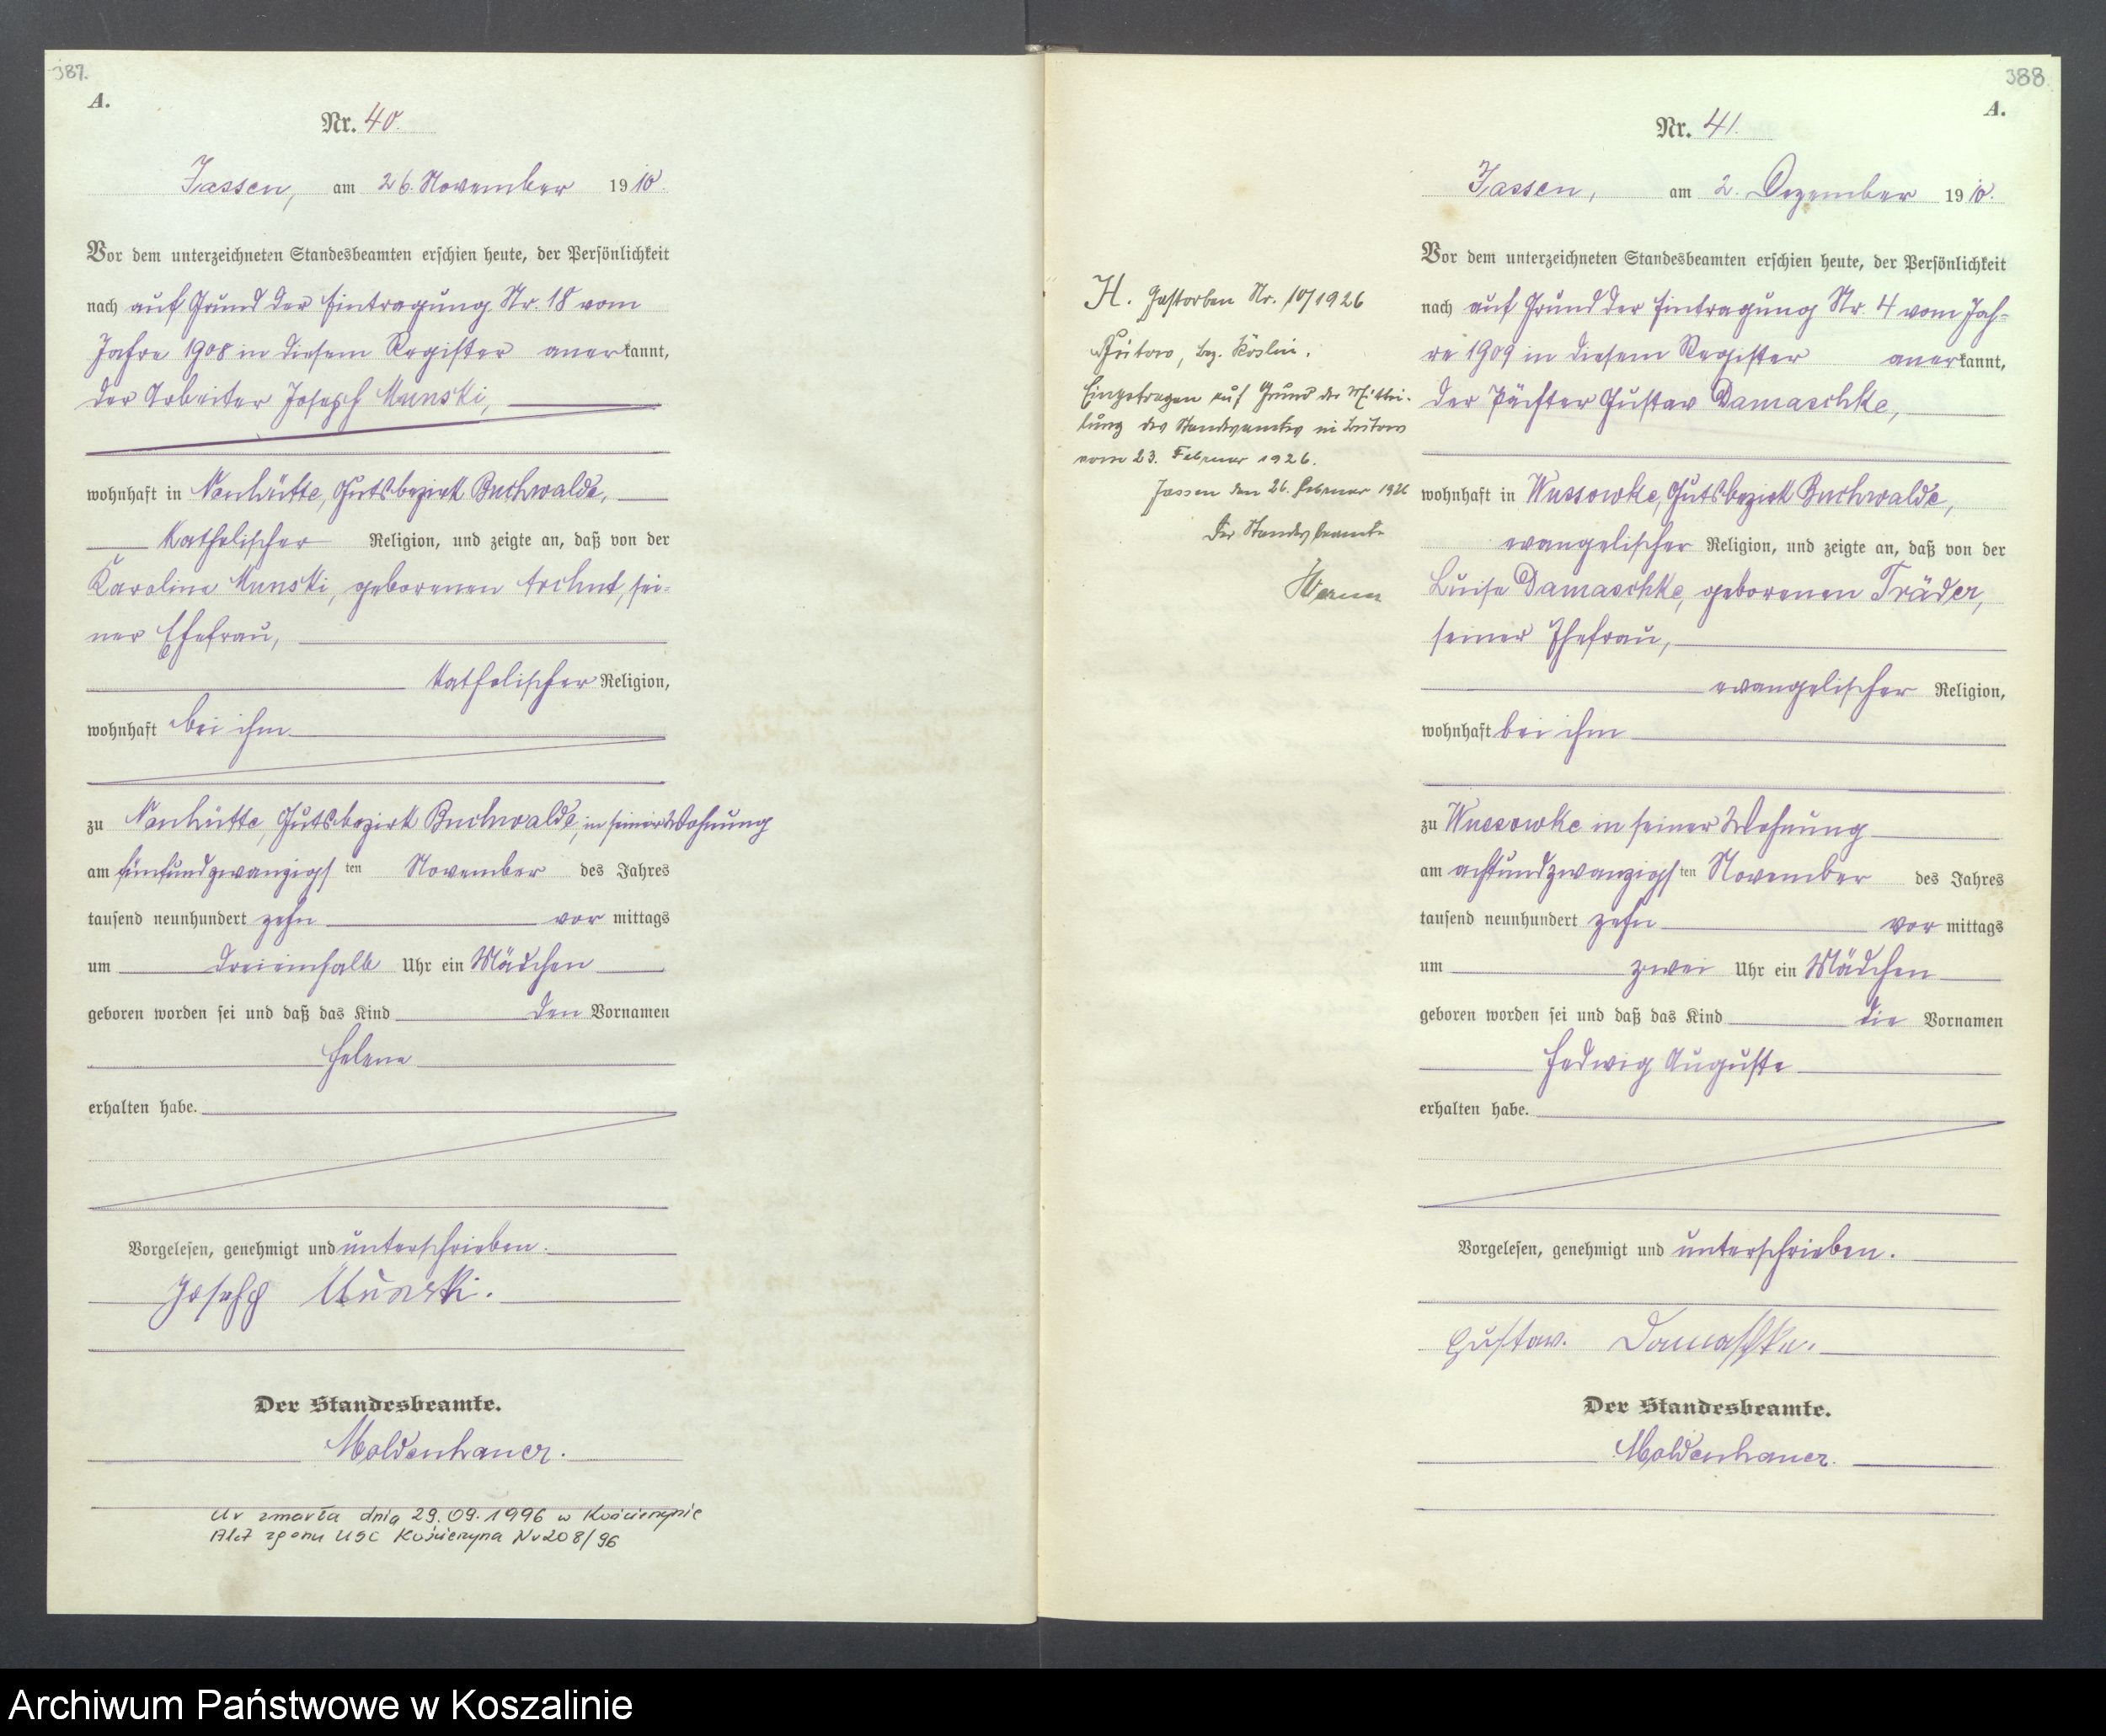 387.
A.
Nr. 40.
Jassen, am 26. November 1910.
Vor dem unterzeichneten Standesbeamten erschien heute, der Persönlichkeit
nach auf Grund der Eintragung Nr. 18 vom
Jahre 1908 in diesem Register anerkannt,
der Arbeiter Joseph Munski,
wohnhaft in Neuhütte, Gutsbezirk Buchwalde,
katholischer Religion, und zeigte an, daß von der
Karoline Munski, geborenen, sei-
ner Ehefrau,
katholischer Religion,
wohnhaft bei ihm
zu Neuhütte, Gutsbezirk Buchwalde, in seiner Wohnung
am fünfundzwanzigsten November des Jahres
tausend neunhundert zehn vor mittags
um dreieinhalb Uhr ein Mädchen
geboren worden sei und daß das Kind den Vornamen
Helene
erhalten habe.
Vorgelesen, genehmigt und unterschrieben.
Joseph Munski.
Der Standesbeamte.
Moldenhauer.
Ur zmarła dnia 29.09.1996 w Kościerzynie
Akt zgonu USC Kościerzyna Nr 208/96
388
A.
Nr. 41.
Jassen, am 2. Dezember 1910.
Vor dem unterzeichneten Standesbeamten erschien heute, der Persönlichkeit
nach auf Grund der Eintragung Nr. 4 vom Jah-
re 1909 in diesem Register anerkannt,
der Pächter Gustav Damaschke,
wohnhaft in Wussowke, Gutsbezirk Buchwalde,
evangelischer Religion, und zeigte an, daß von der
Luise Damaschke, geborenen Träder,
seiner Ehefrau,
evangelischer Religion,
wohnhaft bei ihm
zu Wussowke in seiner Wohnung
am achtundzwanzigsten November des Jahres
tausend neunhundert zehn vor mittags
um zwei Uhr ein Mädchen
geboren worden sei und daß das Kind die Vornamen
Hedwig Auguste
erhalten habe.
Vorgelesen, genehmigt und unterschrieben.
Gustav. Damaschke.
Der Standesbeamte.
Moldenhauer.
H. Gestorben Nr. 10/1926
Bütow, Bez. Köslin.
Eingetragen auf Grund der Mittei-
lung des Standesamtes in Bütow
vom 23. Februar 1926.
Jassen den 26. Februar 1926
Der Standesbeamte
Archiwum Państwowe w Koszalinie